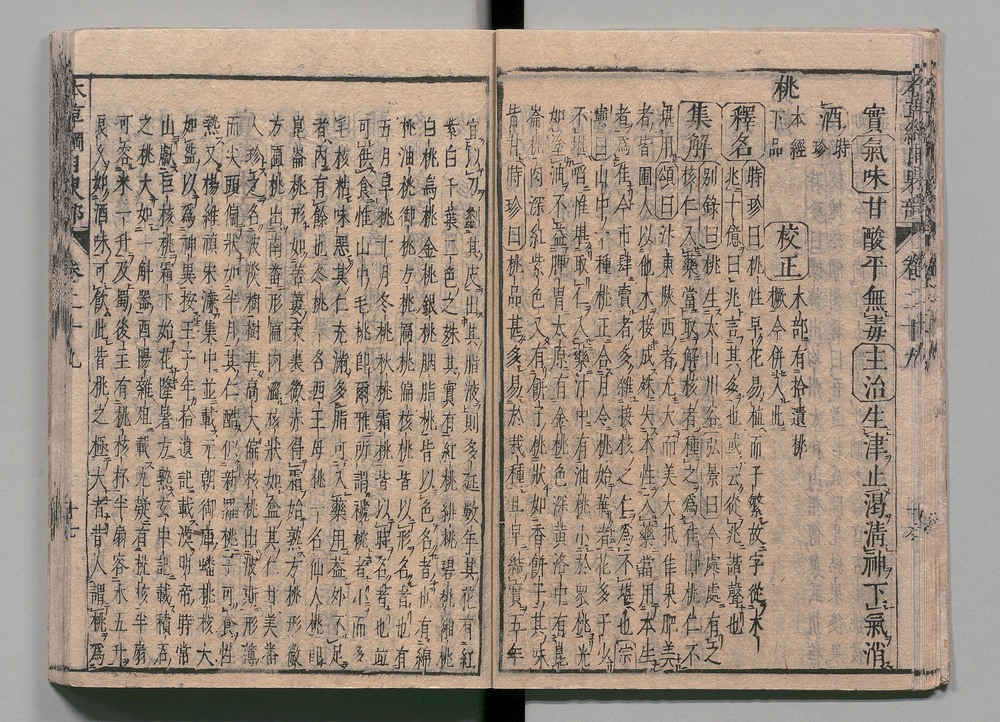 實氣味甘酸平無毒主治生津止渴清神下氣消
酒時珍
桃
本經下品
校正木部有拾遺桃橛今併入此
釋名時珍曰桃性早花易植而子繁故字從木
兆十億曰兆言其多也或云從兆諧聲也
集解別錄曰桃生太山川谷弘景曰今處處有之
核仁入藥當取解核者種之爲佳山桃仁不
堪用頌曰汴東陝西者尤大而美大抵佳果肥美
者皆圃人以他木接成殊失本性入藥當用本生
者爲佳今市肆賣者多雜接核之仁爲不堪也宗
奭曰山中一種桃正合月令桃始華者花多子少
不堪啖惟堪取仁入藥汁中有油桃小於衆桃光
如塗油太原有金桃色深黃洛中有崑
崙桃肉深紅紫色又有餅子桃狀如香餅子其味
皆甘時珍曰桃品甚多易於栽種且早結實五年
宜以刀劙其皮出其脂液則多延數年其花有紅
紫白千葉二色之殊其實有紅桃緋桃碧桃緗桃
白桃烏桃金桃銀桃胭脂桃皆以色名者也有綿
桃油桃御桃方桃匾桃偏核桃皆以形名者也有
五月早桃十月冬桃秋桃霜桃皆以時名者也並
可供食惟山中毛桃即爾雅所謂褫桃者小而多
毛核粘味惡其仁充滿多脂可入藥用蓋外不足
者內有餘也冬桃一名西王母桃一名仙人桃即
崑崙桃形如苦蔞表裏徹赤得霜始熟方桃形微
方匾桃出南番形匾肉澀核狀如盒其仁甘美番
人珍之名波淡樹樹甚高大偏核桃出波斯形薄
而尖頭偏狀如半月其仁酷似新羅桃子可食性
熱又楊維禎宋濂集中並載元朝御庫蟠桃核大
如盌以爲神異按王子年拾遺記載漢明帝時常
山獻巨核桃霜下始花隆暑方熟玄中記載積石
之桃大如十斛器酉陽雜俎載九疑有桃核半扇
可容米一升及蜀後主有桃核杯半扇容水五升
良久如酒味可飲此皆桃之極大者昔人謂桃爲